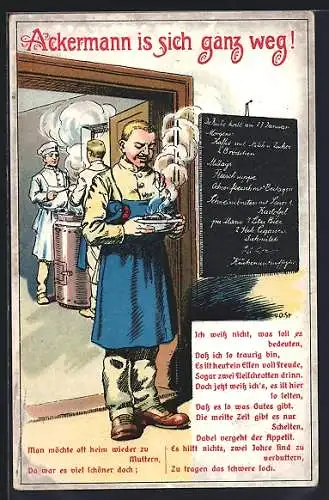 Ackermann is sich ganz weg!
27 Januar
Morgens:
Kaffe mit Milch u Zucker
2 Brödchen
Mittags
Fleischsuppe
Kartofel
2 Stck Cigarren
Ich weiß nicht, was soll es
bedeuten,
Daß ich so traurig bin,
Es ist heut ein Essen voll Freude,
Sogar zwei Fleischratten drinn.
Doch jetzt weiß ich's, es ist hier
so selten,
Daß es so was Gutes gibt.
Die meiste Zeit gibt es nur
Schelten,
Dabei vergeht der Appetit.
Man möchte oft heim wieder zu
Muttern,
Da war es viel schöner doch;
Es hilft nichts, zwei Jahre sind zu
verbuttern,
Zu tragen das schwere Joch.